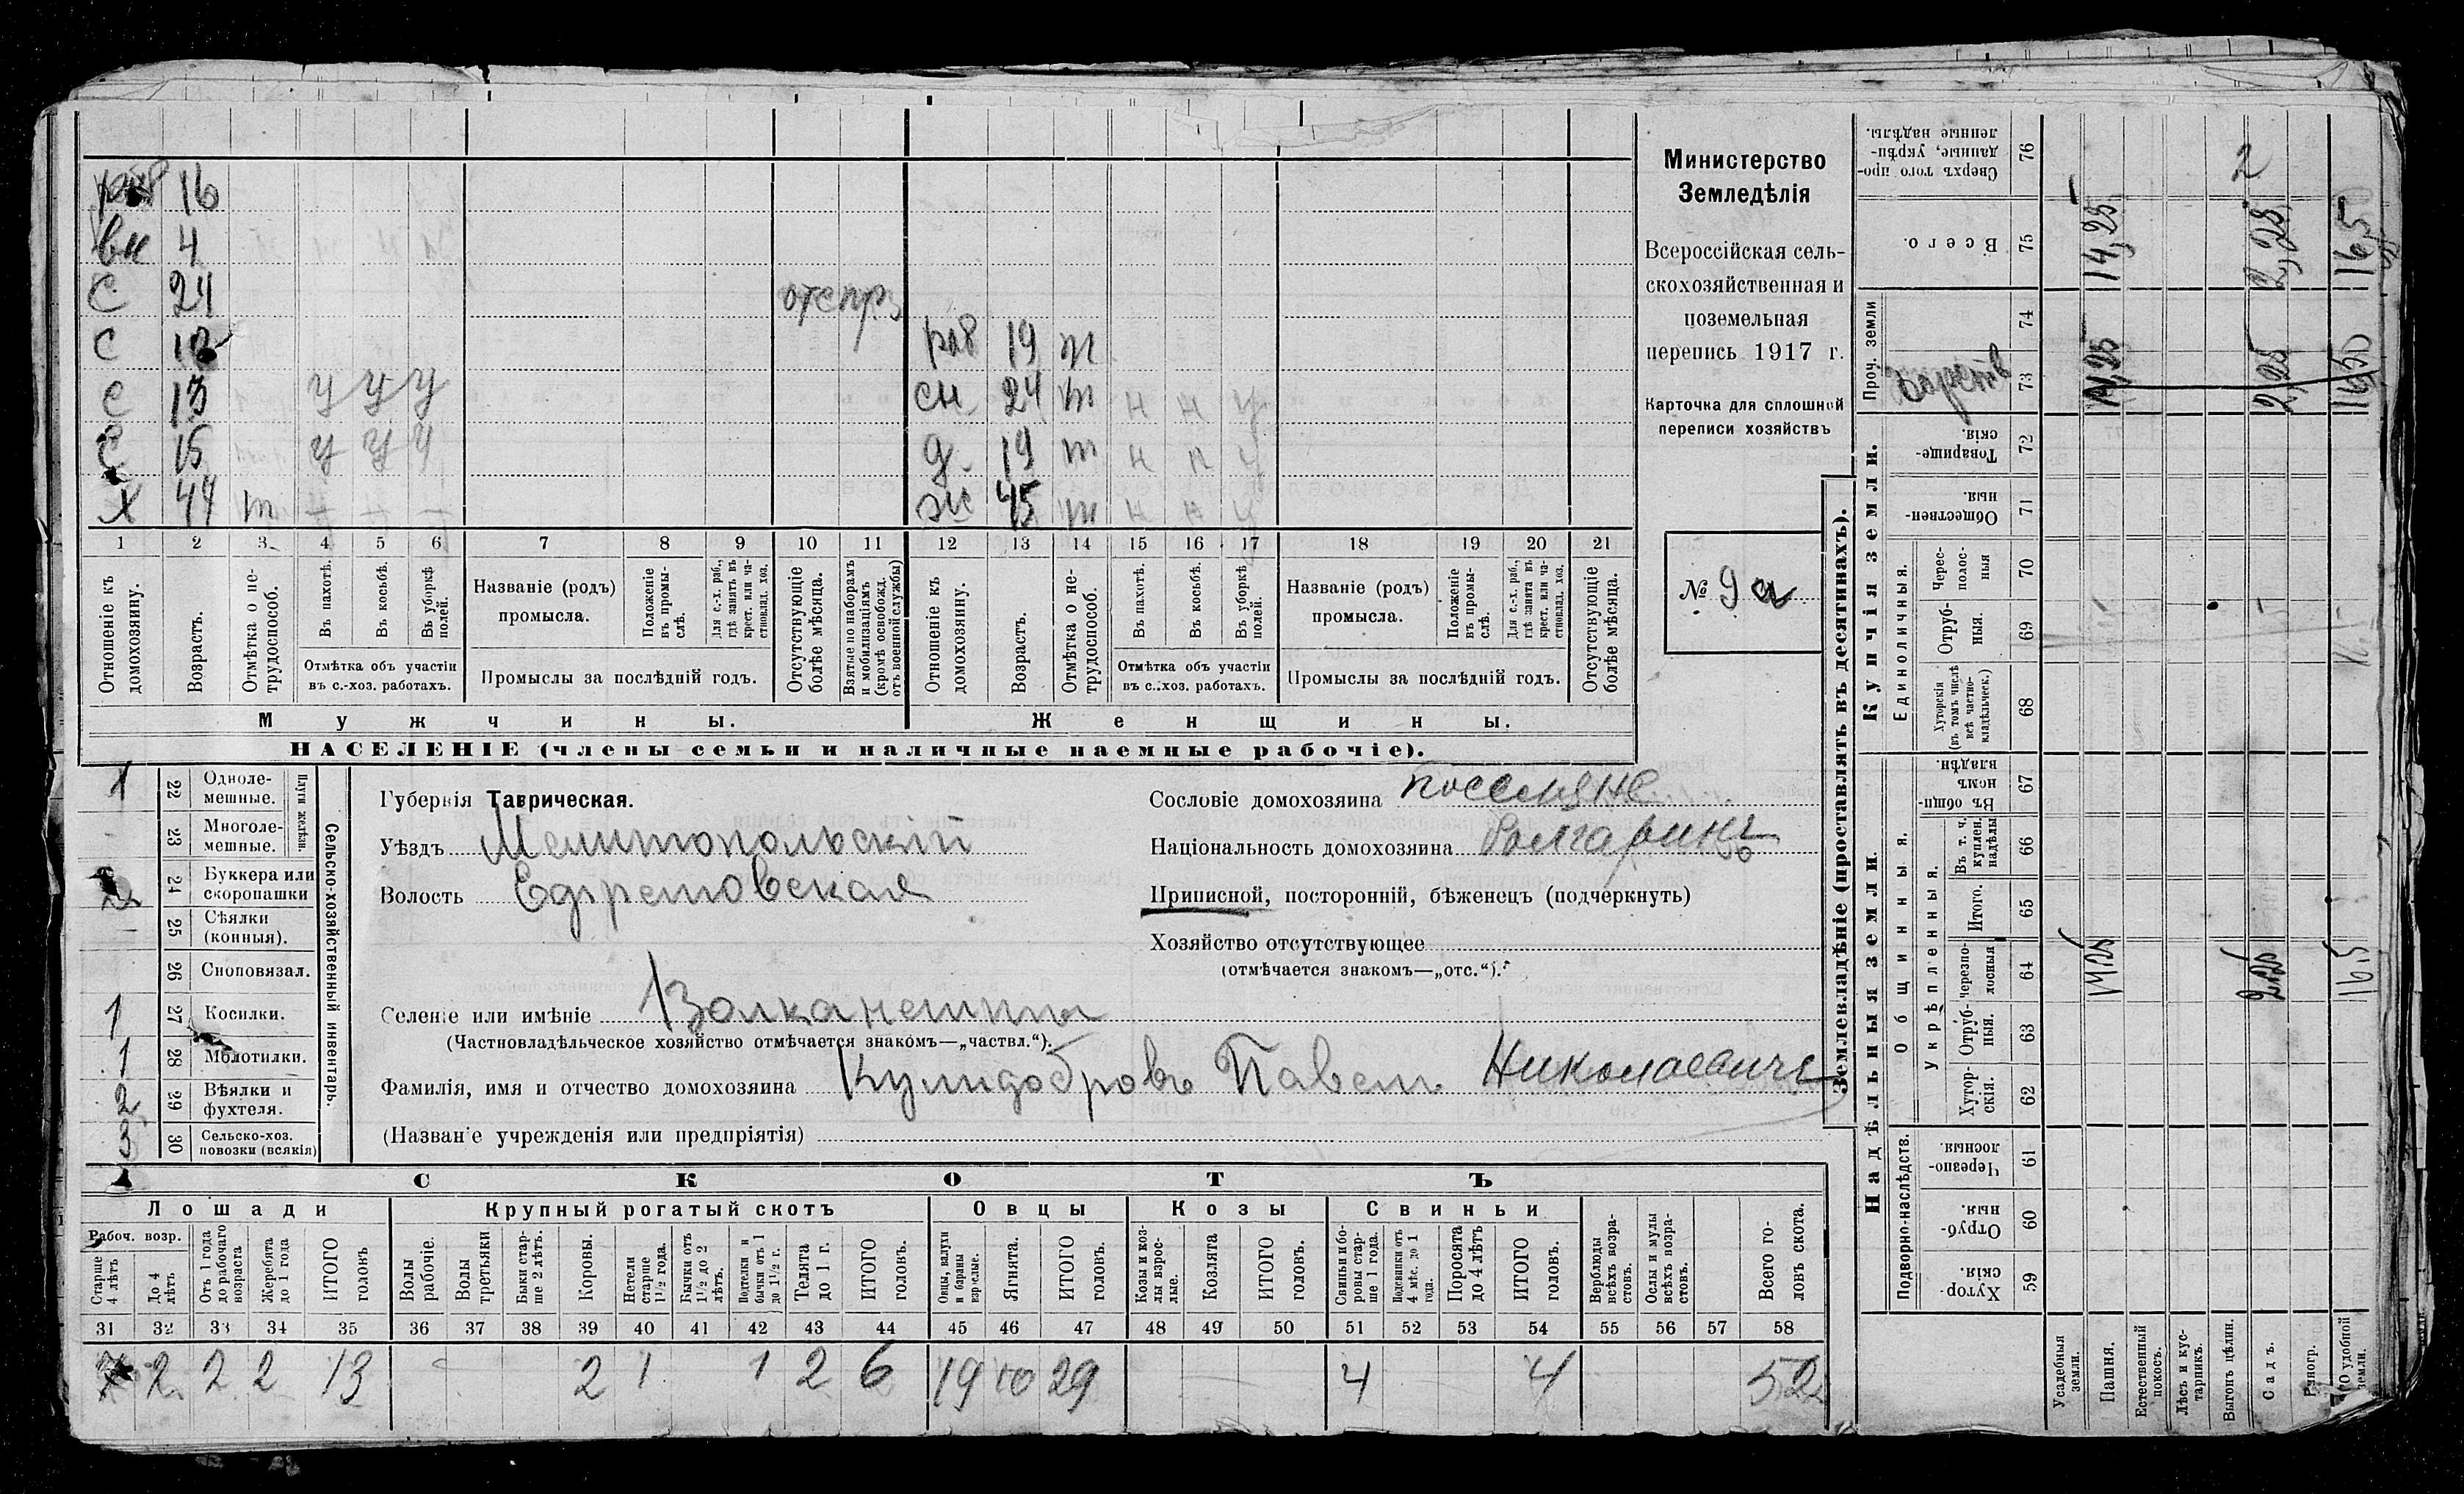 раб 16
вн 4
С 24 отс пр
С 18 раб 19 т
С 13 у у у сн 24 т н н у
С 15 у у у д 19 т н н у
Х 44 т ж 45 т н н у
1 2 3 4 5 6 7 8 9 10 11 12 13 14 15 16 17 18 19 20 21
Отношеніе къ домохозяину.
Возрастъ.
Отмѣтка о не-трудоспособ.
Въ пахотѣ.
Въ косьбѣ.
Въ уборкѣ полей.
Отмѣтка объ участіи въ с.-хоз. работахъ.
Названіе (родъ) промысла.
Положеніе въ промы-слѣ.
Для с.-х. раб., гдѣ занятъ въ крест. или ча-стновлад. хоз.
Промыслы за послѣдній годъ.
Отсутствующіе болѣе мѣсяца.
Взятые по наборамъ и мобилизаціямъ (кромѣ освобожд. отъ военной службы)
Отношеніе къ домохозяину.
Возрастъ.
Отмѣтка о не-трудоспособ.
Въ пахотѣ.
Въ косьбѣ.
Въ уборкѣ полей.
Отмѣтка объ участіи въ с.-хоз. работахъ.
Названіе (родъ) промысла.
Положеніе въ промы-слѣ.
Для с.-х. раб., гдѣ занята въ крест. или ча-стновлад. хоз.
Промыслы за послѣдній годъ.
Отсутствующіе болѣе мѣсяца.
Мужчины. Женщины.
НАСЕЛЕНІЕ (члены семьи и наличные наемные рабочіе).
Министерство
Земледѣлія
Всероссійская сель-
скохозяйственная и
поземельная
перепись 1917 г.
Карточка для сплошной
переписи хозяйствъ
№ 9 а
1 22 Одноле-мешные.
23 Многоле-мешные.
Плуги желѣзн.
2 24 Буккера или скоропашки
25 Сѣялки (конныя).
26 Сноповязал.
1 27 Косилки.
1 28 Молотилки.
2 29 Вѣялки и фухтеля.
3 30 Сельско-хоз. повозки (всякія)
Сельско-хозяйственный инвентарь.
Губернія Таврическая.
Уѣздъ Мелитопольскій
Волость Ефремовская
Селеніе или имѣніе Волканешты
(Частновладѣльческое хозяйство отмѣчается знакомъ—„частвл.“).
Фамилія, имя и отчество домохозяина Кулидобровъ Павелъ Николаевичъ
(Названіе учрежденія или предпріятія)
Сословіе домохозяина поселяне
Національность домохозяина болгаринъ
Приписной, посторонній, бѣженецъ (подчеркнуть)
Хозяйство отсутствующее
(отмѣчается знакомъ—„отс.“).
СКОТЪ
Лошади Крупный рогатый скотъ Овцы Козы Свиньи
Рабоч. возр.
Старше 4 лѣтъ
До 4 лѣтъ
Отъ 1 года до рабочаго возраста
Жеребята до 1 года
ИТОГО головъ
Волы рабочіе.
Волы третьяки
Быки стар-ше 2 лѣтъ.
Коровы.
Нетели старше 1½ года.
Бычки отъ 1½ до 2 лѣтъ.
Подтелки и бычки отъ 1 до 1½ г.
Телята до 1 г.
ИТОГО головъ.
Овцы, валухи и бараны взрослые.
Ягнята.
ИТОГО головъ.
Козы и коз-лы взрос-лые.
Козлята
ИТОГО головъ.
Свиньи и бо-ровы стар-ше 1 года.
Подсвинки отъ 4 мѣс. до 1 года.
Поросята до 4 лѣтъ
ИТОГО головъ.
Верблюды всѣхъ возра-стовъ.
Ослы и мулы всѣхъ возра-стовъ.
Всего го-ловъ скота.
31 32 33 34 35 36 37 38 39 40 41 42 43 44 45 46 47 48 49 50 51 52 53 54 55 56 57 58
7 2 2 2 13 2 1 1 2 6 19 10 29 4 4 52
Землевладѣніе (проставлять въ десятинахъ).
Надѣльныя земли. Купчія земли. Проч. земли
Подворно-наслѣдств.
Общинныя.
Укрѣпленныя.
Единоличныя.
Хутор-скія. 59
Отруб-ныя. 60
Черезпо-лосныя 61
Хутор-скія. 62
Отруб-ныя. 63
черезпо-лосныя 64
Итого. 65
Въ т. ч. куплен. надѣлы 66
Въ общи-номъ владѣн. 67
Хуторскія (въ томъ числѣ всѣ частно-владѣльческ.) 68
Отруб-ныя. 69
Черес-полос-ныя 70
Обществен-ныя. 71
Товарище-скія. 72
73
74
Всего. 75
Сверхъ того про-данные, укрѣп-ленные надѣлы. 76
Усадебныя земли.
Пашня. 14,25 14,25 14,25
Естественный покосъ.
Лѣсъ и кус-тарникъ.
Выгонъ цѣлин. 2
Садъ. 2,25 2,25 2,25
Виногр.
удобной земли. 16,5 16,50 16,5